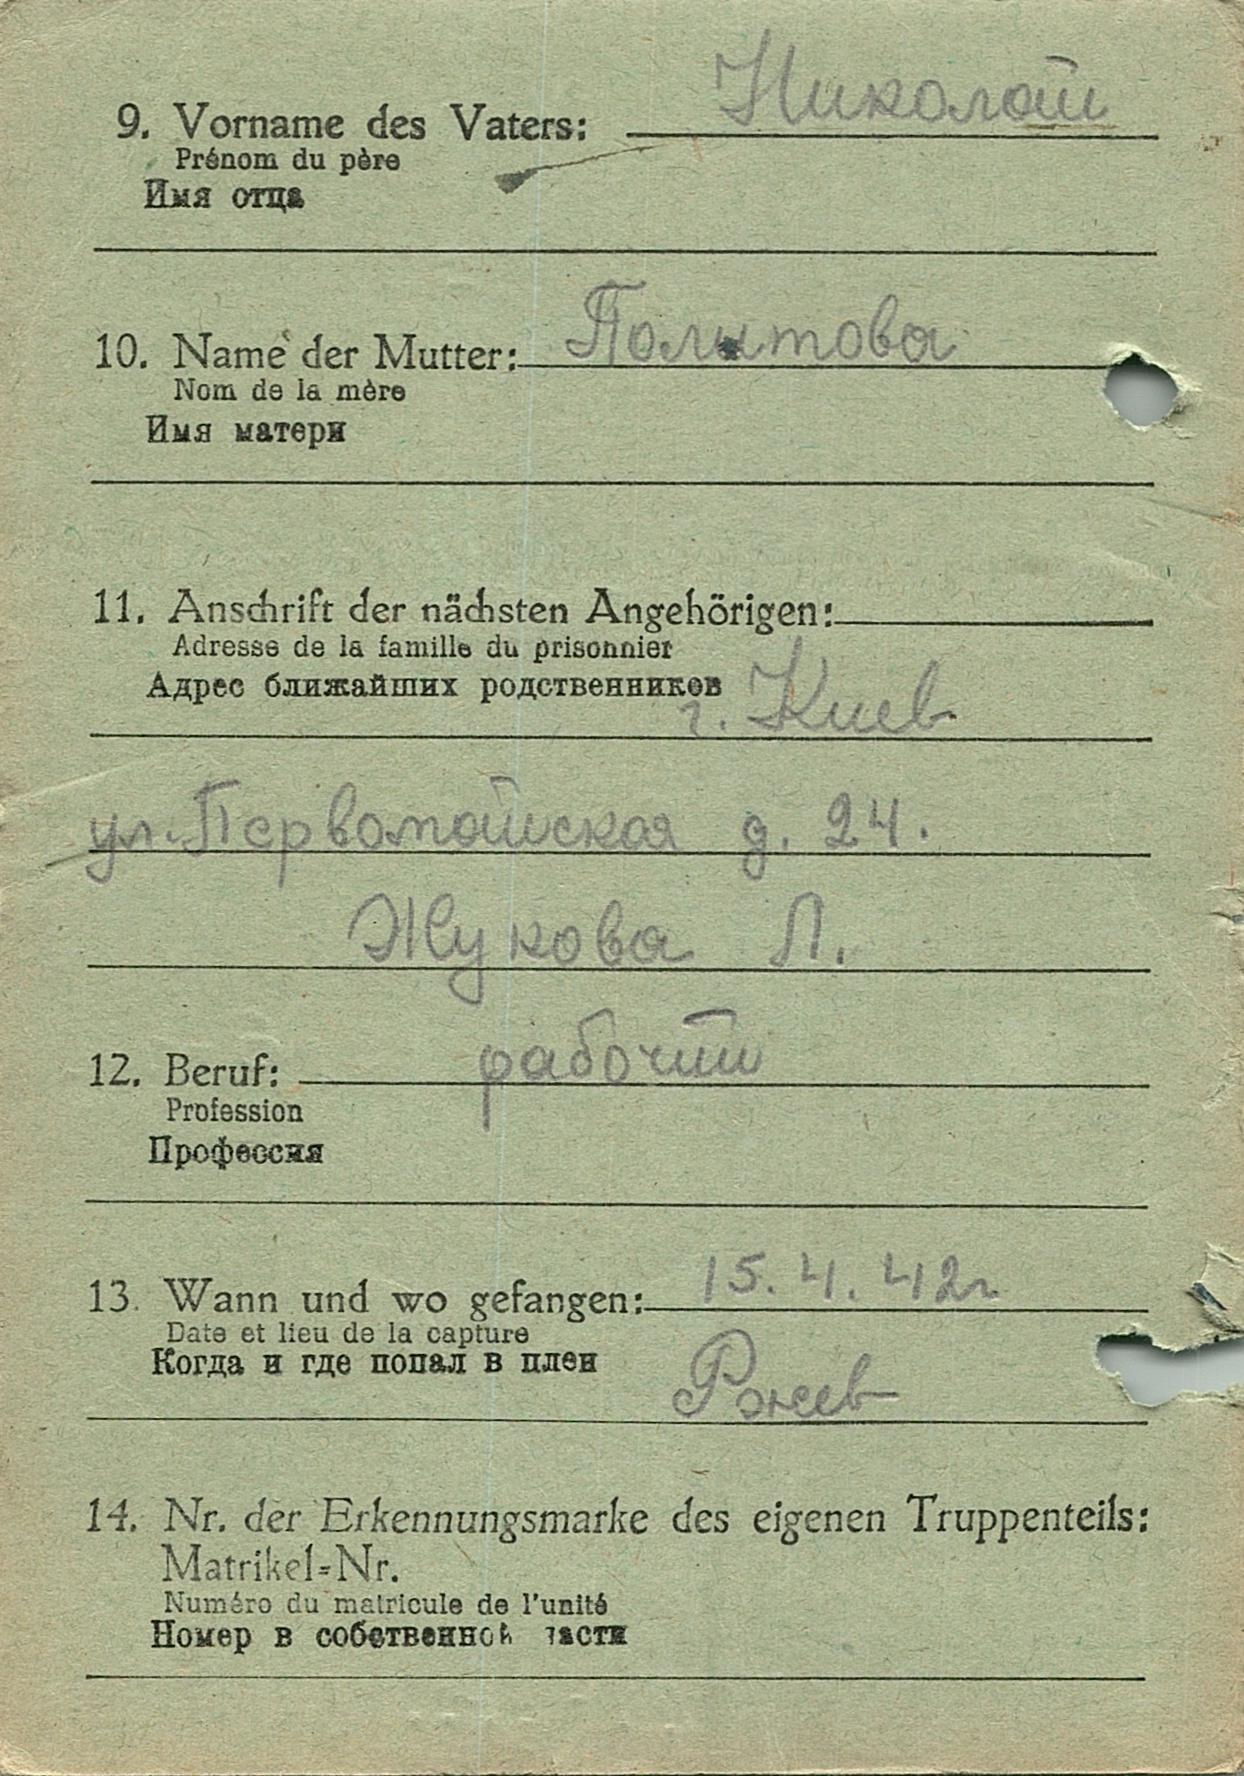 9. Vorname des Vaters: Николай
Prénom du père
Имя отца
10. Name der Mutter: Политова
Nom de la mère
Имя матери
11. Anschrift der nächsten Angehörigen:
Adresse de la famille du prisonnier
Адрес ближайших родственников
г. Киев
ул. Первомайская д. 24.
Жукова Л.
12. Beruf: рабочий
Profession
Профессия
13. Wann und wo gefangen: 15.4.42г
Date et lieu de la capture
Когда и где попал в плен
Ржев
14. Nr. der Erkennungsmarke des eigenen Truppenteils:
Matrikel=Nr.
Numéro du matricule de l'unité
Номер в собственной части